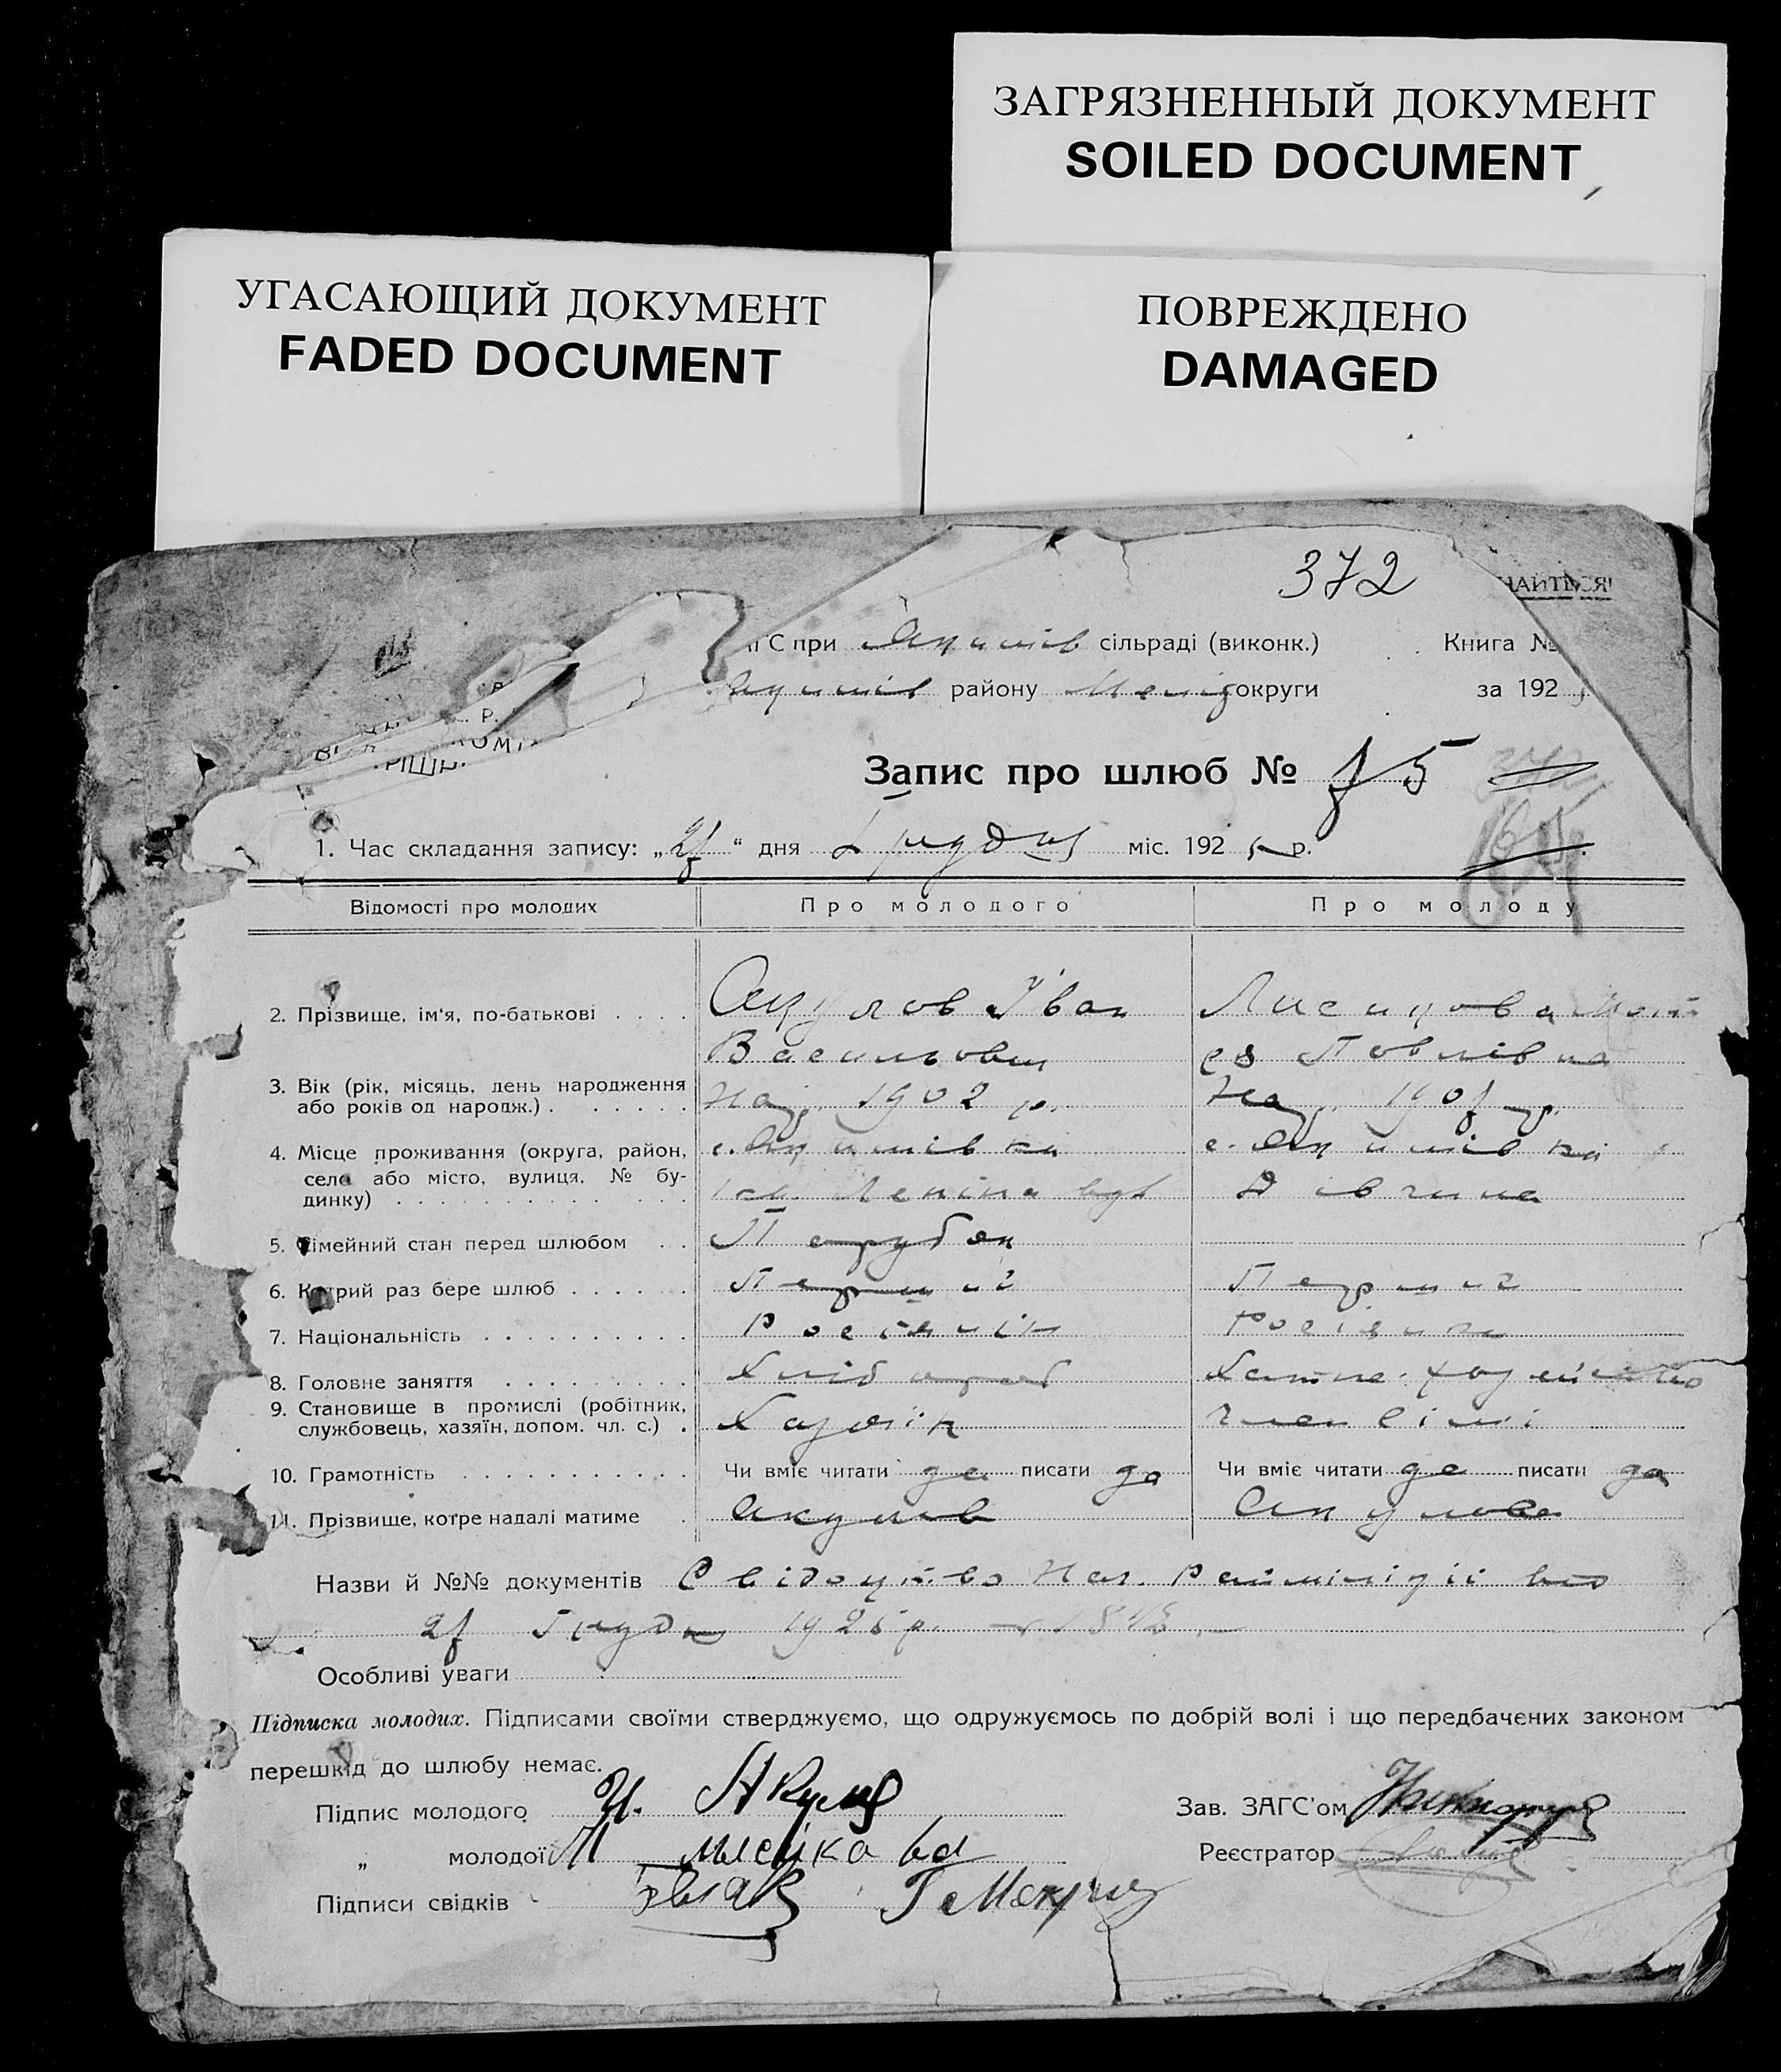 ЗАГРЯЗНЕННЫЙ ДОКУМЕНТ
SOILED DOCUMENT
УГАСАЮЩИЙ ДОКУМЕНТ
FADED DOCUMENT
ПОВРЕЖДЕНО
DAMAGED
372
С при Якимів сільраді (виконк.) Книга №
Якимів району Меліт округи за 192
Запис про шлюб №
1. Час складання запису: „ “ дня Грудня міс. 1925 р.
Відомості про молодих Про молодого Про молоду
2. Прізвище, ім‘я, по-батькові Акулов Іван Лисицова
Васильович Павлівна
3. Вік (рік, місяць, день народження
або років од народж.) Нар. 1902 р. Нар. р.
4. Місце проживання (округа, район, с. Якимівка с. Якимівка
село або місто, вулиця, № бу-
динку) Леніна Дівчина
5. Сімейний стан перед шлюбом Парубок
6. Котрий раз бере шлюб Перший Перший
7. Національність Росіянин Росіянка
8. Головне заняття Хлібороб Хатне
9. Становище в промислі (робітник,
службовець, хазяїн, допом. чл. с.) Хазяїн Член сімї
10. Грамотність Чи вміє читати да писати да Чи вміє читати да писати да
11. Прізвище, котре надалі матиме Акулов Акулова
Назви й №№ документів Свідоцтво Нач. Райміліції від
Грудня 1925 р.
Особливі уваги
Підписка молодих. Підписами своїми стверджуємо, що одружуємось по добрій волі і що передбачених законом
перешкід до шлюбу немає.
Підпис молодого И. Акулов Зав. ЗАГС‘ом
„ молодої М Реєстратор
Підписи свідків